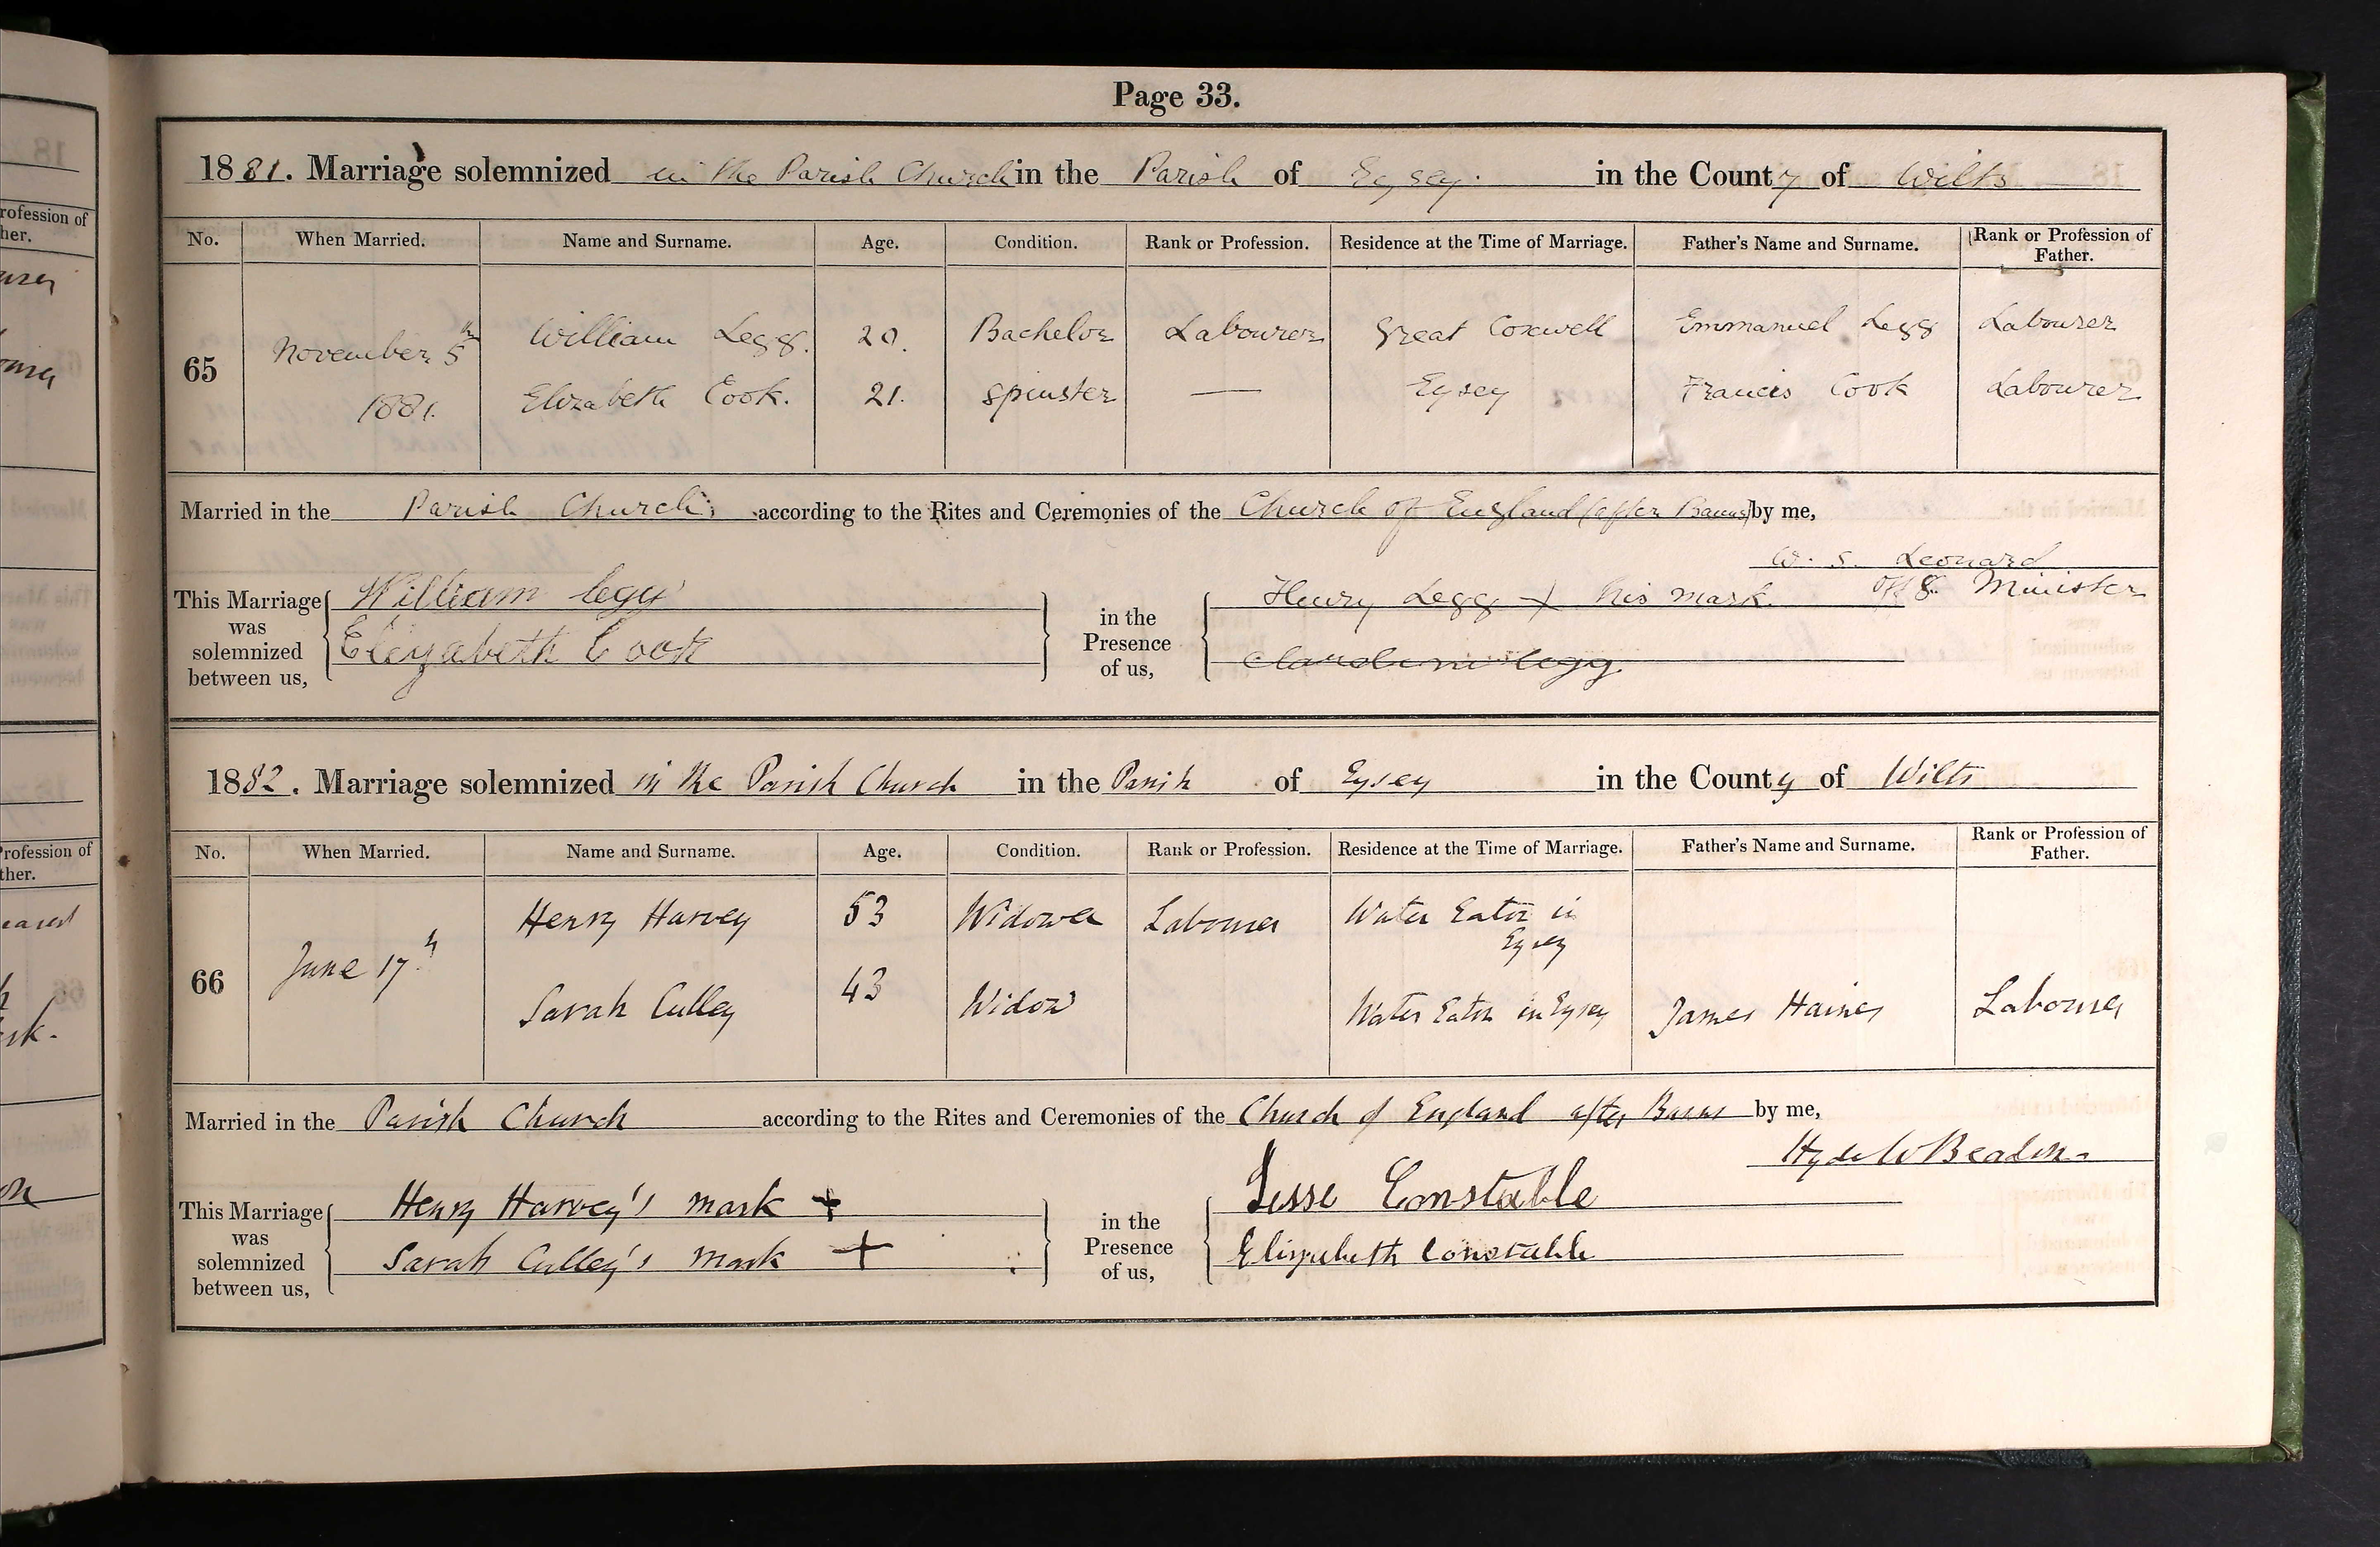 Page 33.
1881. Marriage solemnized in the Parish Church in the Parish of Eysey. in the County of Wilts
No. When Married. Name and Surname. Age. Condition. Rank or Profession. Residence at the Time of Marriage. Father's Name and Surname. Rank or Profession of Father.
65 November 5th William Legg. 20. Bachelor Labourer Great Coxwell Emmanuel Legg Labourer
1881. Elizabeth Cook. 21. Spinster — Eysey Francis Cook Labourer
Married in the Parish Church. according to the Rites and Ceremonies of the Church of England (after Banns) by me,
W. S. Leonard
Offg. Minister
This Marriage was solemnized between us, William legg in the Presence of us, Henry Legg + his mark.
Elezabeth Cook legg.
1882. Marriage solemnized in the Parish Church in the Parish of Eysey in the County of Wilts
No. When Married. Name and Surname. Age. Condition. Rank or Profession. Residence at the Time of Marriage. Father's Name and Surname. Rank or Profession of Father.
66 June 17th Henry Harvey 53 Widower Labourer Water Eaton in Eysey
Sarah Culley 43 Widow Water Eaton in Eysey James Haines Labourer
Married in the Parish Church according to the Rites and Ceremonies of the Church of England after Banns by me,
Hyde W Beadon
This Marriage was solemnized between us, Henry Harvey's mark + in the Presence of us, Jesse Constable
Sarah Culley's mark + Elizabeth Constable